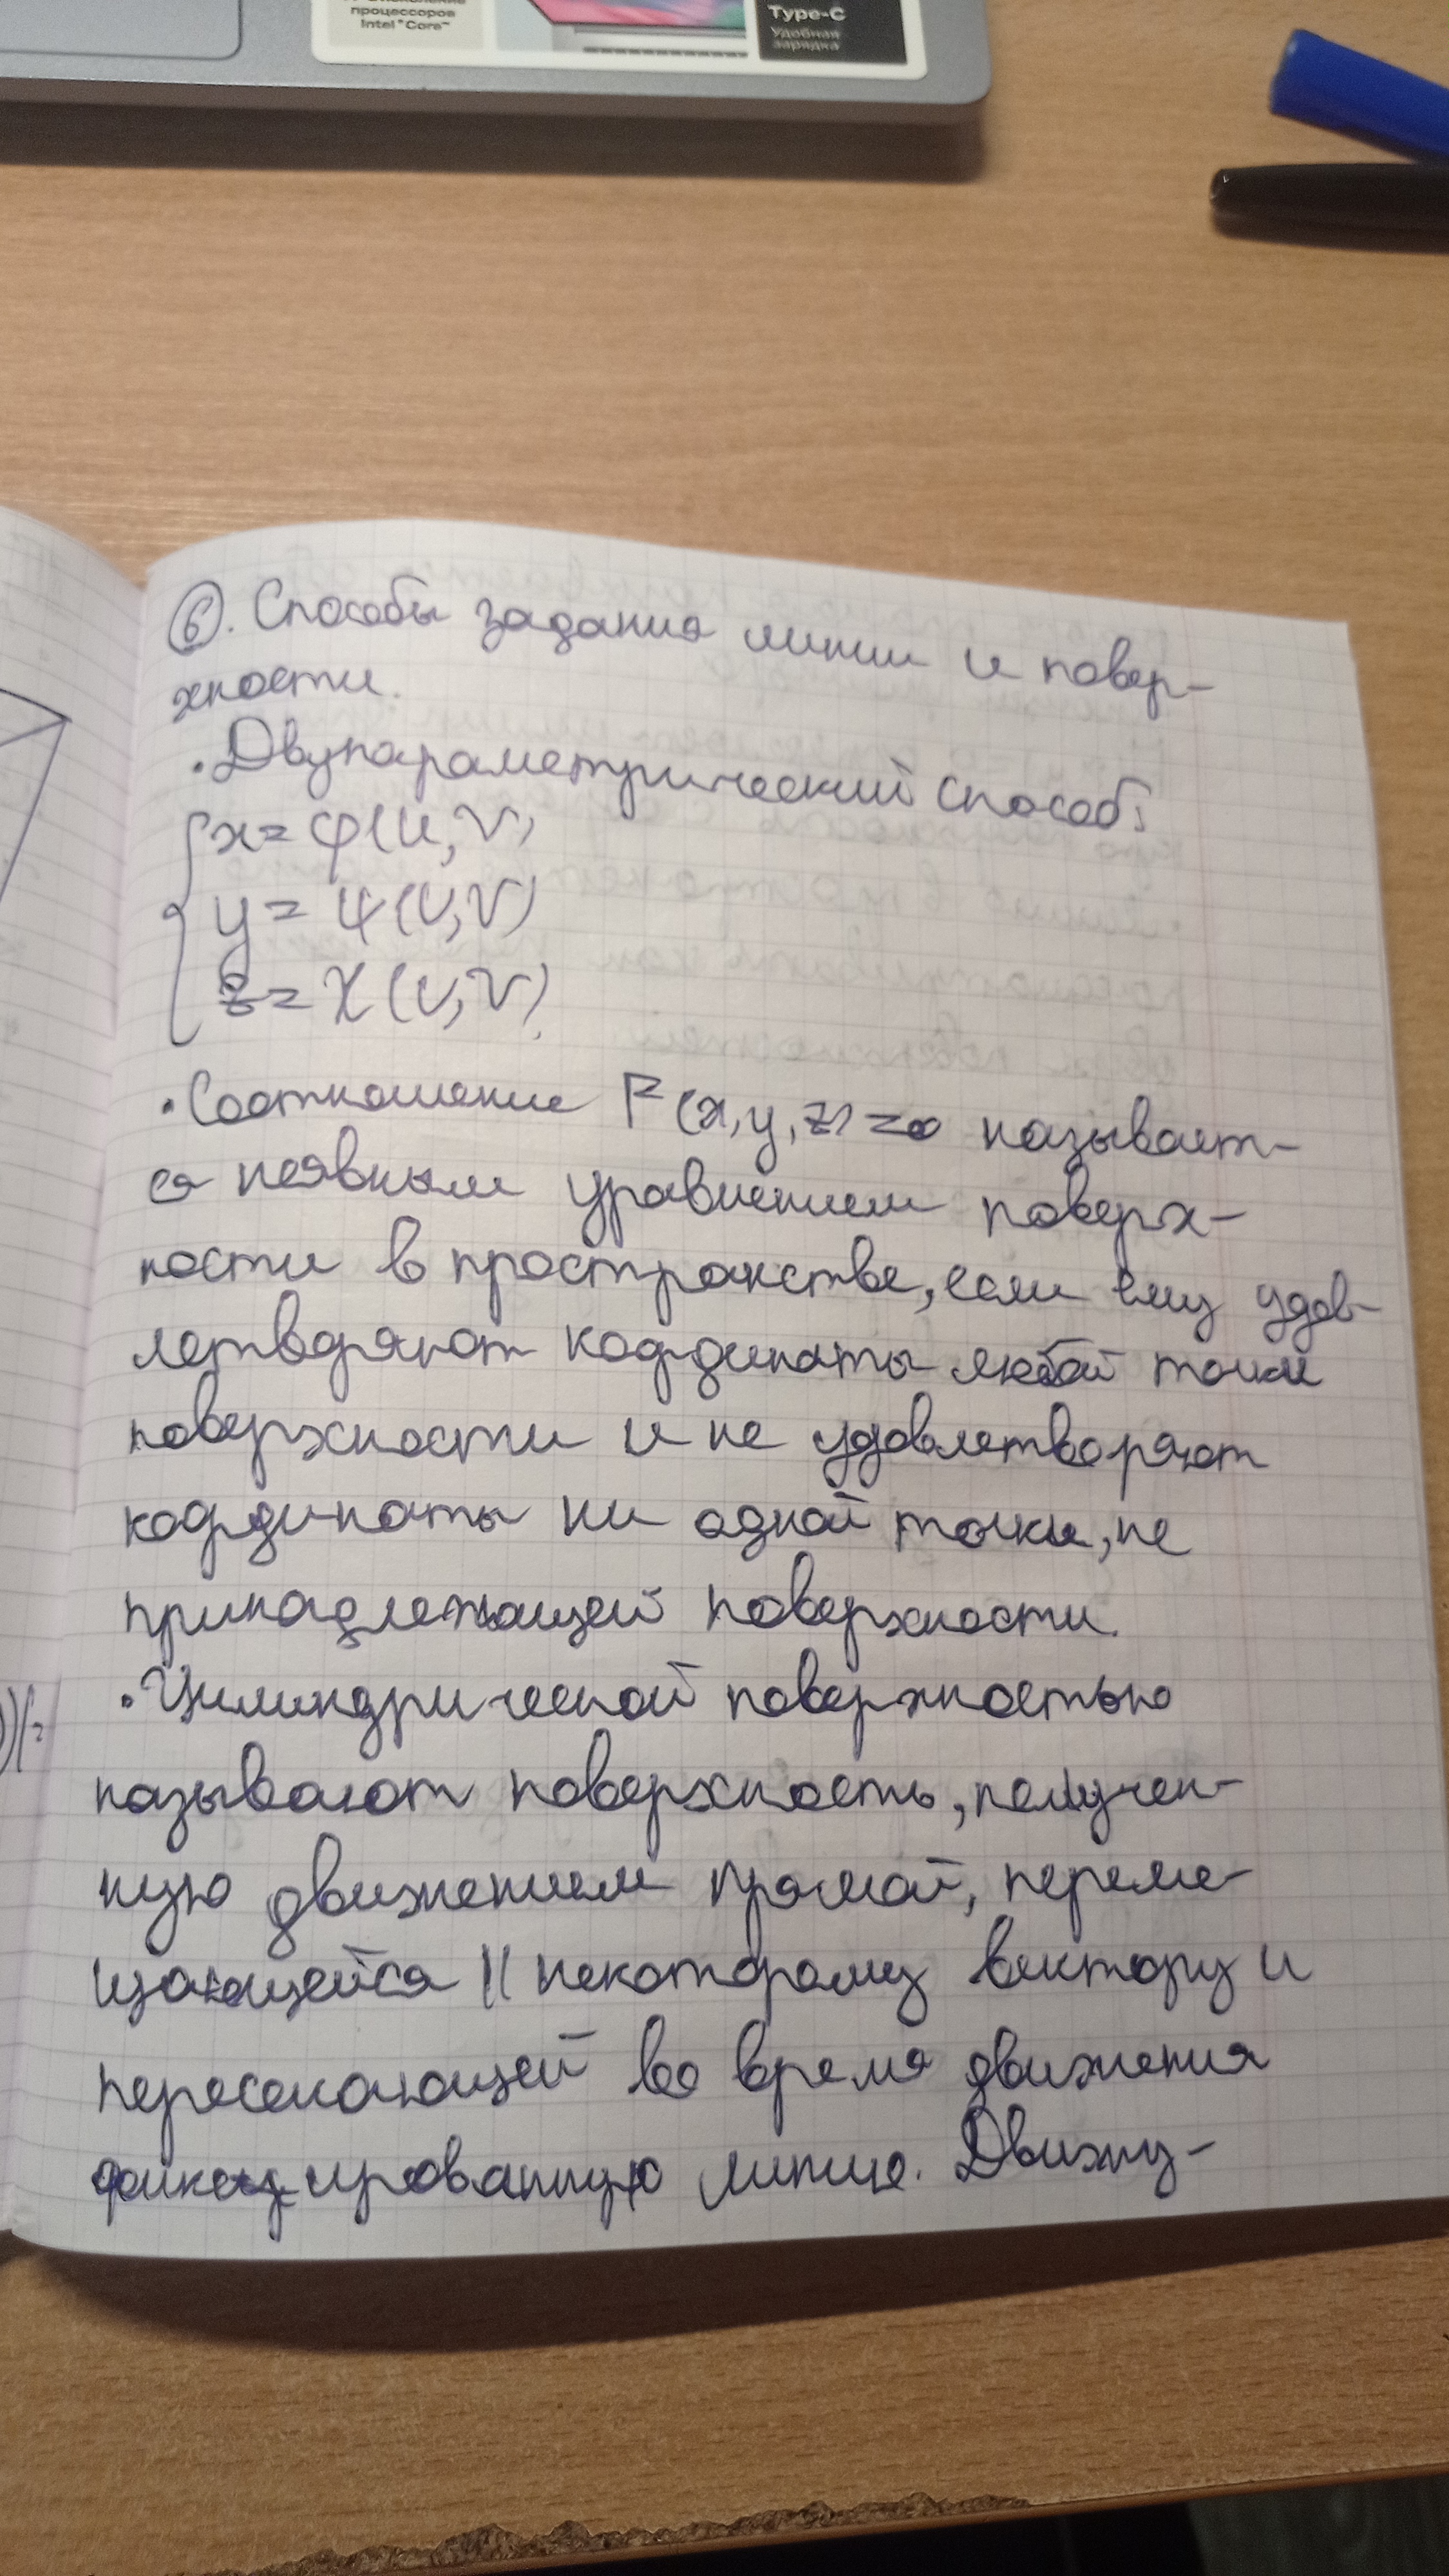 процессоров
Intel® Core™
Type-C
Удобная
зарядка
6. Способы задания линии и повер-
хности.
• Двупараметрический способ:
x = φ(u, v)
y = ψ(u, v)
z = χ(u, v)
• Соотношение F(x, y, z) = 0 называет-
ся неявным уравнением поверх-
ности в пространстве, если ему удов-
летворяют координаты любой точки
поверхности и не удовлетворяют
координаты ни одной точки, не
принадлежащей поверхности.
• Цилиндрической поверхностью
называют поверхность, получен-
ную движением прямой, переме-
щающейся || некоторому вектору и
пересекающей во время движения
фиксированную линию. Движу-